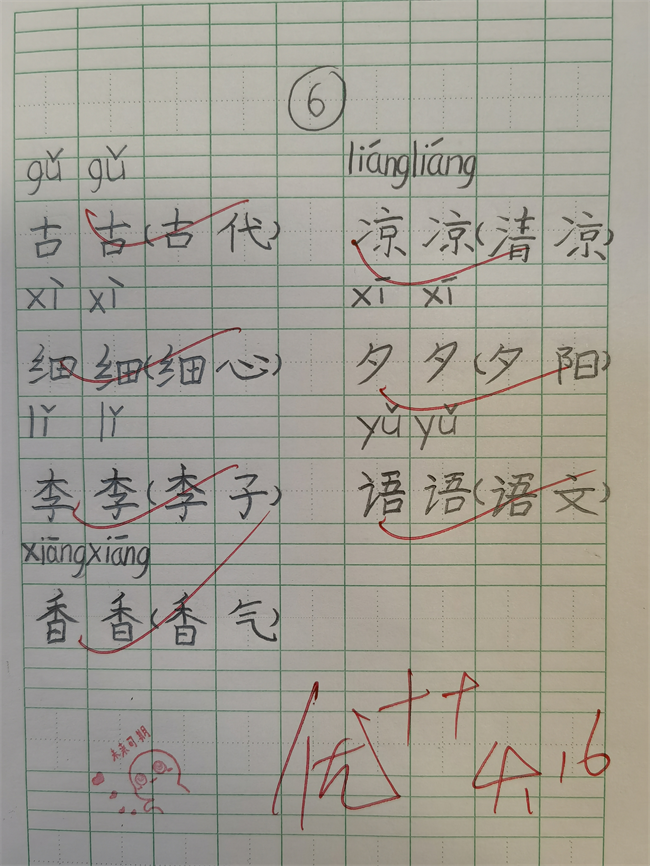 6
gǔ gǔ liángliáng
古 古(古 代) 凉 凉(清 凉)
xì xì xī xī
细 细(细 心) 夕 夕(夕 阳)
lǐ lǐ yǔ yǔ
李 李(李 子) 语 语(语 文)
xiāngxiāng
香 香(香 气)
未来可期
优++ 4.16